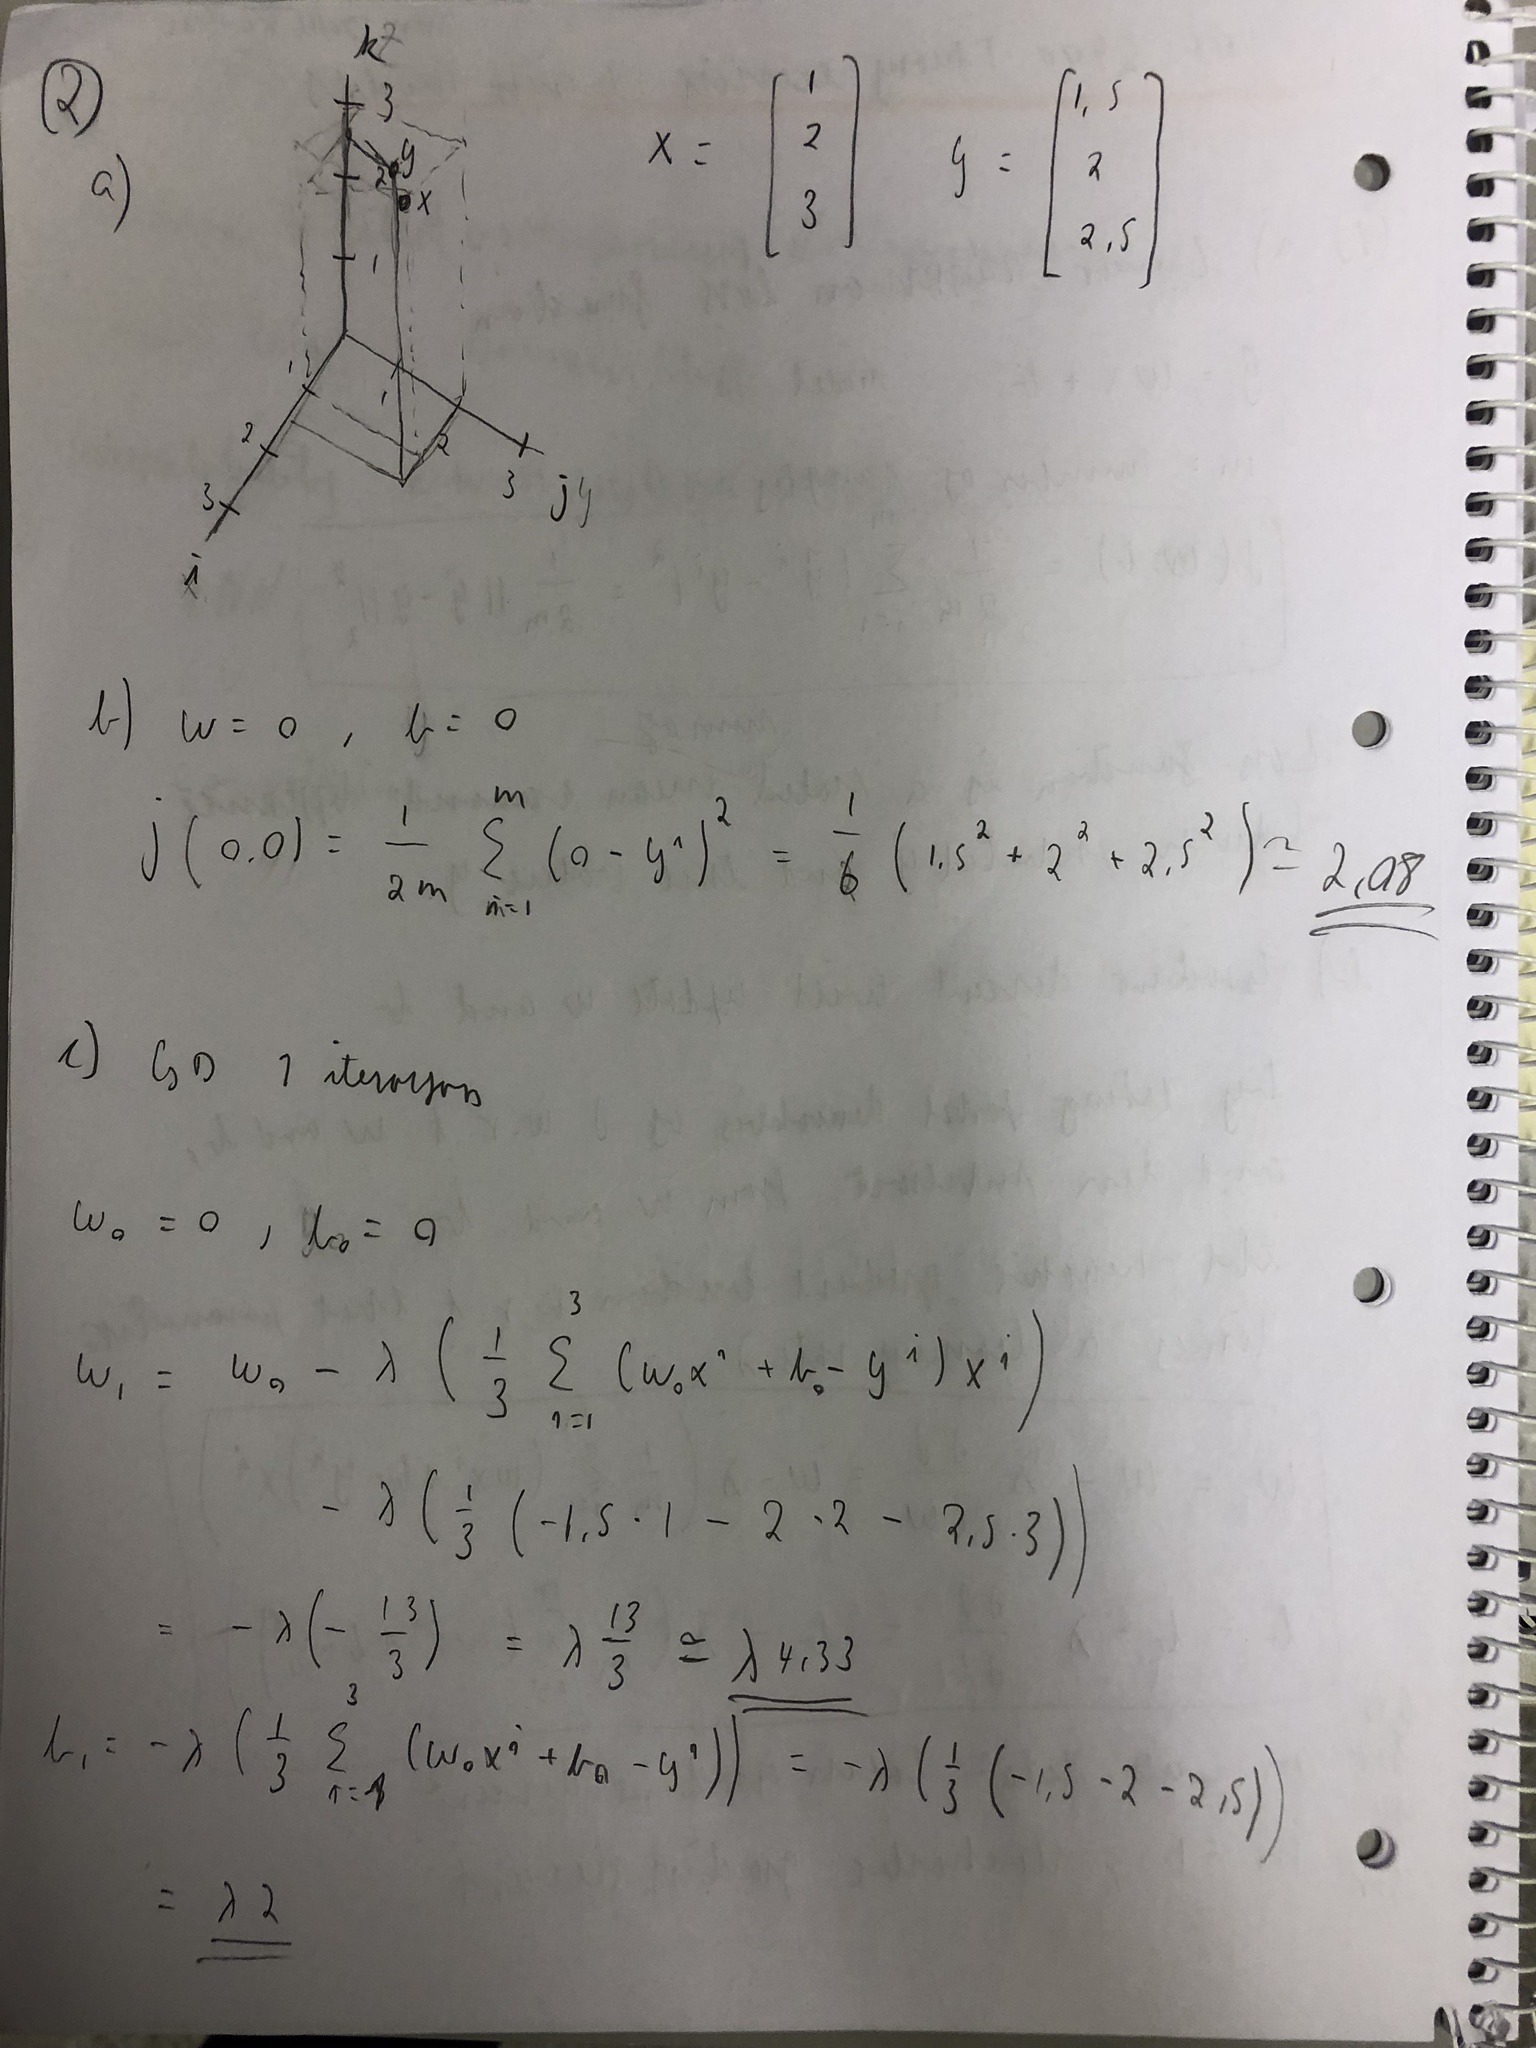 (2)
a)
kz
3
2
1
y
x
1
2
3
1
2
3
jy
i
x
x = [1 2 3] y = [1,5 2 2,5]
b) w = 0 , b = 0
j(0,0) = 1/2m Σ_{i=1}^{m} (0 - y^i)^2 = 1/6 (1,5^2 + 2^2 + 2,5^2) ≃ 2,08
c) GD 1 iterasjon
w_0 = 0 , b_0 = 0
w_1 = w_0 - λ (1/3 Σ_{i=1}^{3} (w_0 x^i + b_0 - y^i) x^i)
- λ (1/3 (-1,5 · 1 - 2 · 2 - 2,5 · 3))
= - λ (- 13/3) = λ 13/3 ≃ λ 4,33
b_1 = - λ (1/3 Σ_{i=1}^{3} (w_0 x^i + b_0 - y^i)) = - λ (1/3 (-1,5 - 2 - 2,5))
= λ 2